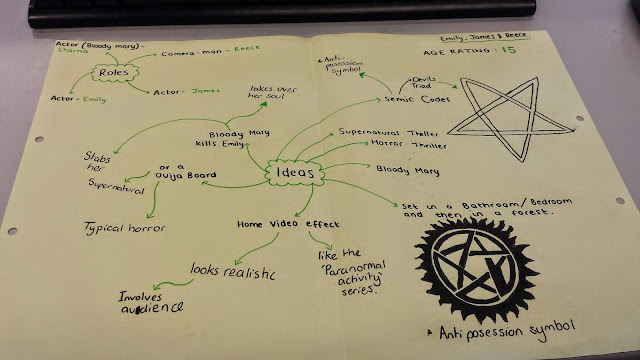 Emily, James & Reece.
AGE RATING : 15
Actor (Bloody mary) -
Sharna
Camera-man - Reece
Roles
Actor - Emily
Actor - James
* Anti-
posession
symbol
Devils
Triad
Semic Codes
takes over
her soul
Bloody Mary
kills Emily
Stabs
her
or a
Ouija Board
Supernatural
Typical horror
Ideas
Supernatural Thriller
Horror Thriller
Bloody Mary
Set in a Bathroom/Bedroom
and then in a forest.
Home Video effect
looks realistic
Involves
audience
like the
'Paranormal
activity'
series.
* Anti posession symbol